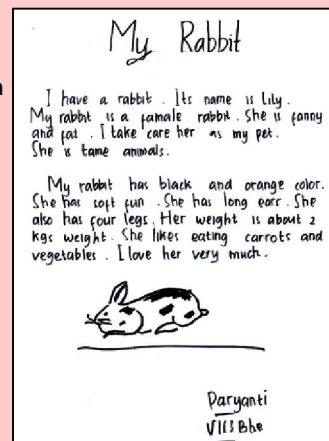 My Rabbit
I have a rabbit. Its name is Lily.
My rabbit is a famale rabbit. She is fanny
and fat. I take care her as my pet.
She is tame animals.
My rabbit has black and orange color.
She has soft fun. She has long earr. She
also has four legs. Her weight is about 2
kgs weight. She likes eating carrots and
vegetables. I love her very much.
Paryanti